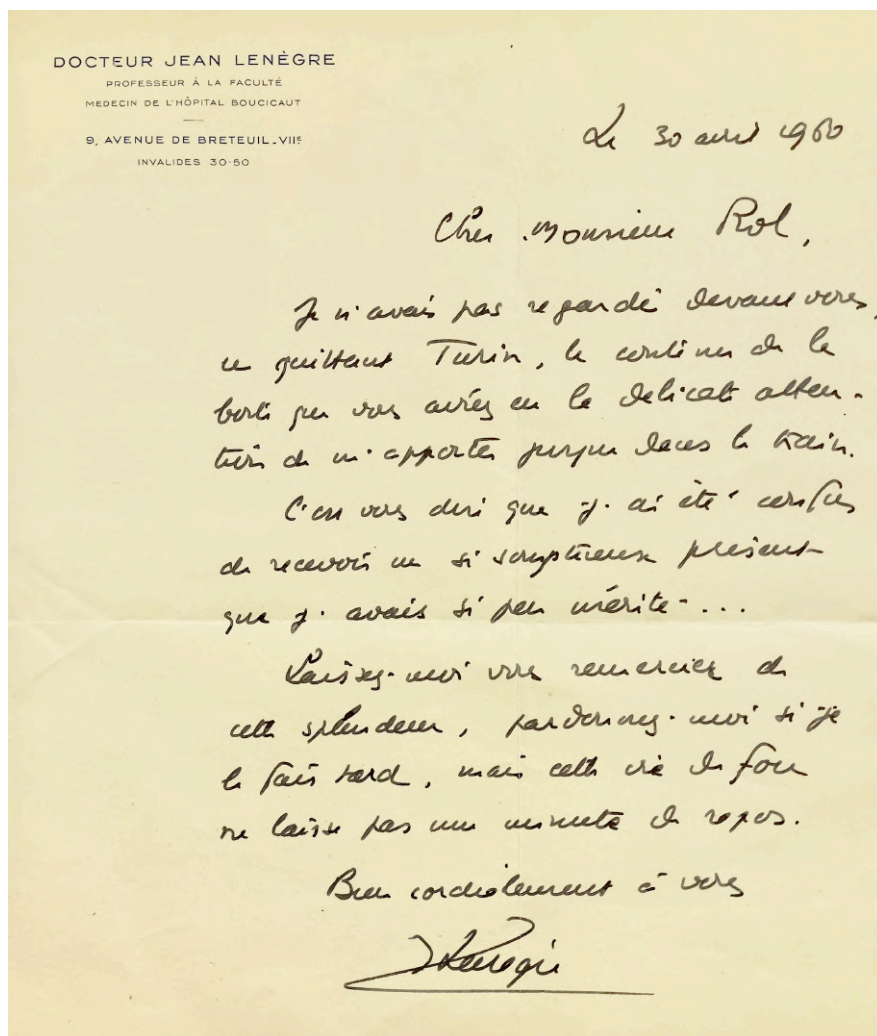 DOCTEUR JEAN LENÈGRE
PROFESSEUR À LA FACULTÉ
MEDECIN DE L'HÔPITAL BOUCICAUT
9, AVENUE DE BRETEUIL_VIIE
INVALIDES 30-50
Le 30 avril 1960
Cher Monsieur Rol,
Je n'avais pas regardé devant vous,
en quittant Turin, le contenu de la
boîte que vous aviez eu la délicate atten-
tion de m'apporter jusque dans le train.
C'est vous dire que j'ai été confus
de recevoir un si somptueux présent
que j'avais si peu mérité...
Laissez-moi vous remercier de
cette splendeur, pardonnez-moi si je
le fais tard, mais cette vie de fou
ne laisse pas une minute de repos.
Bien cordialement à vous
JLenègre